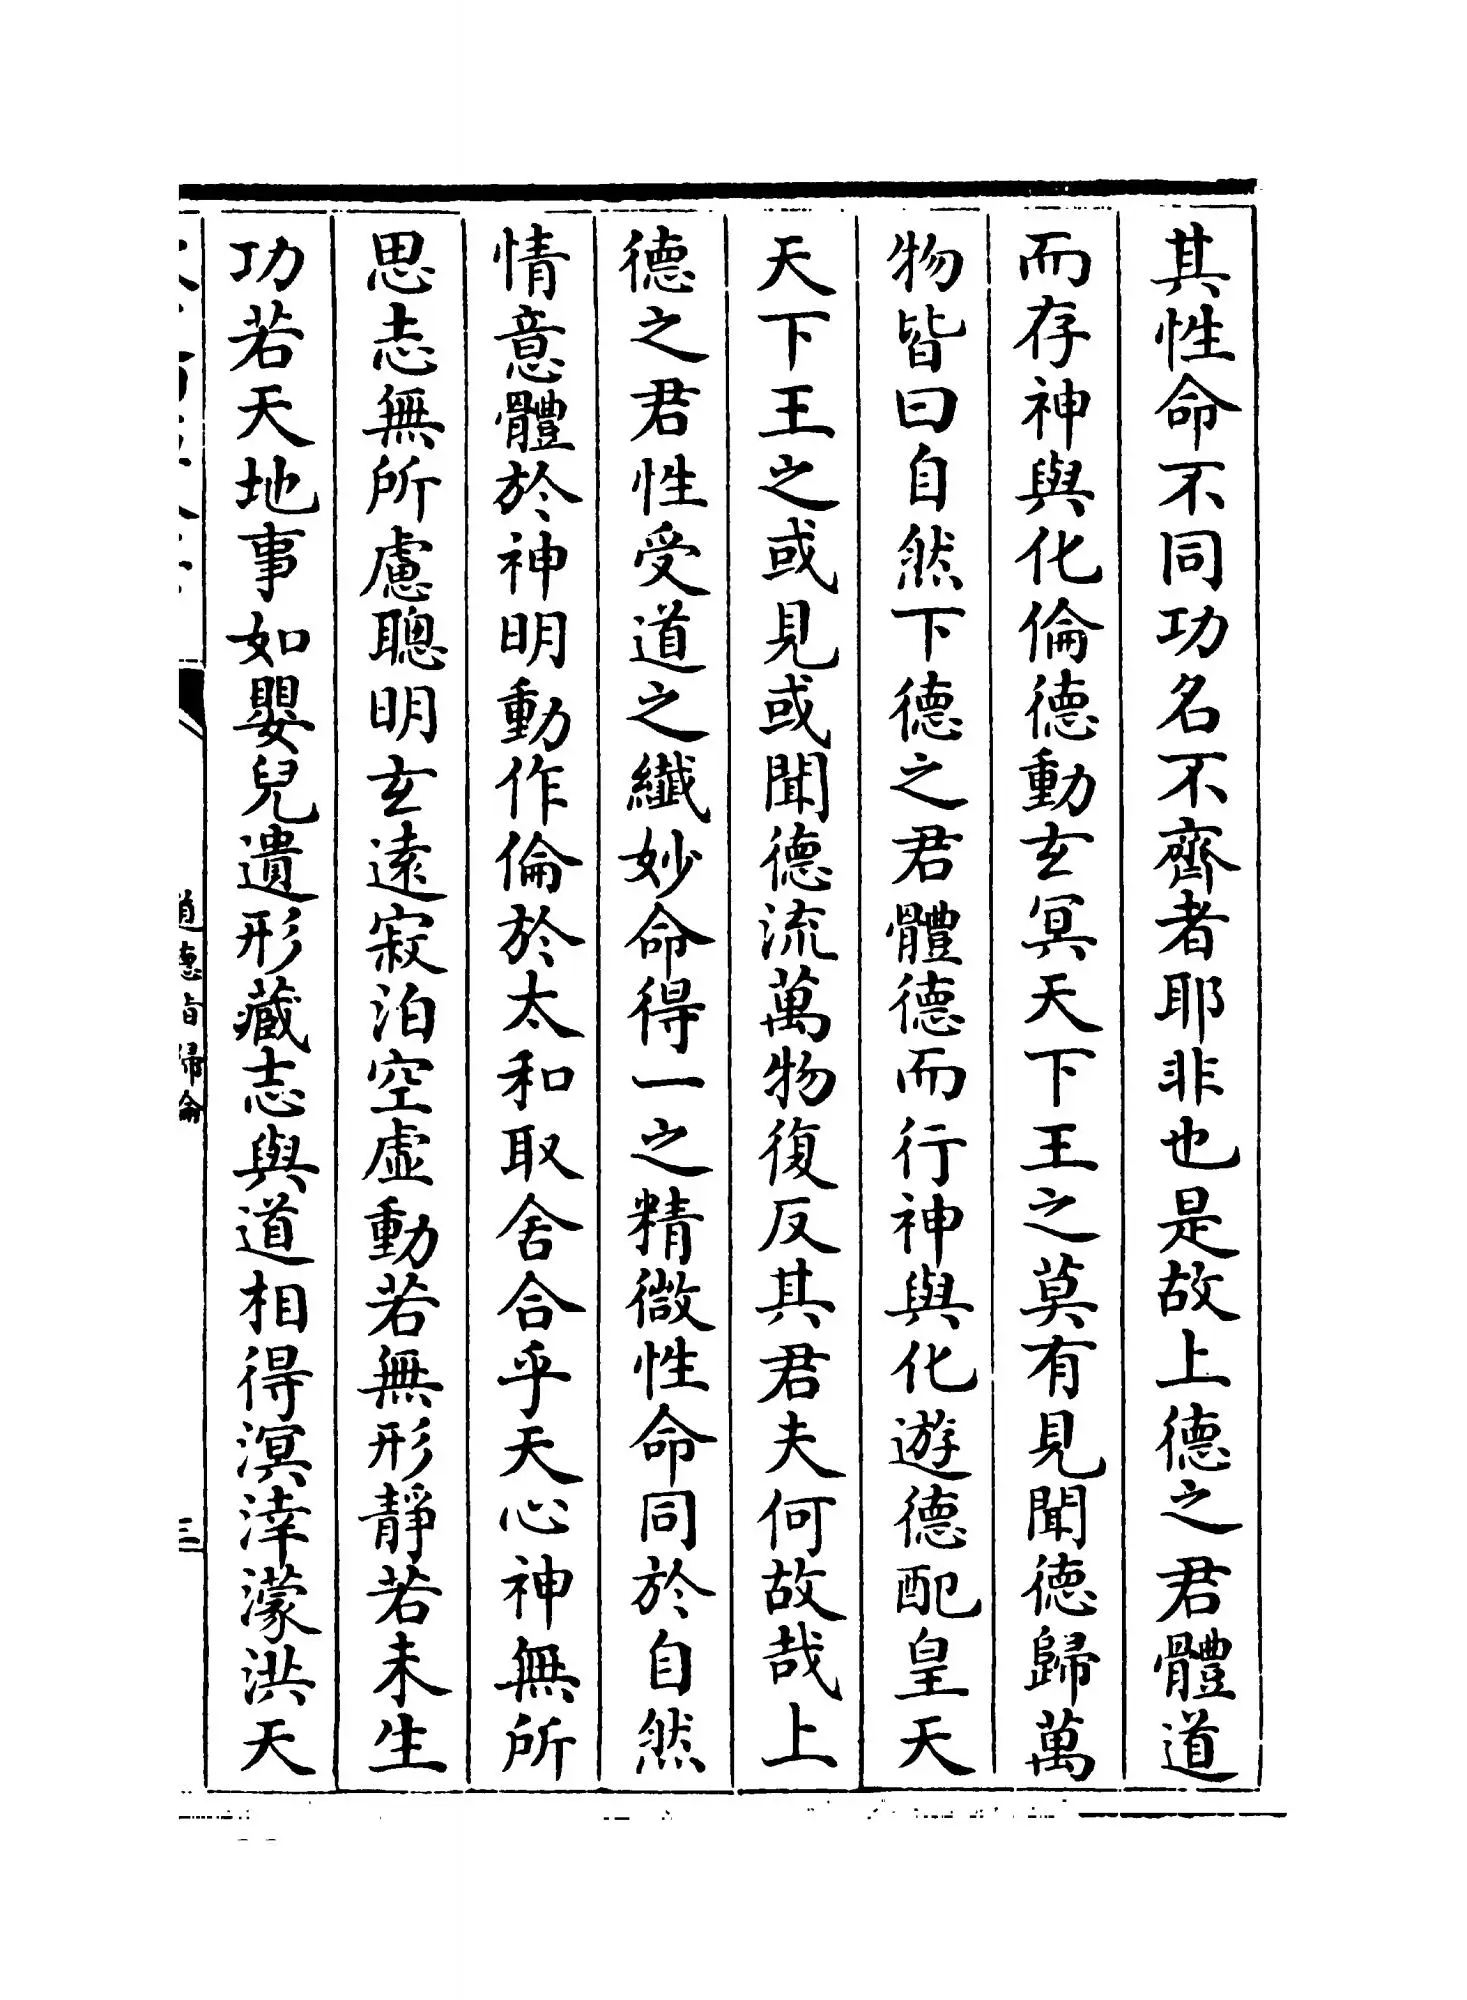 其性命不同功名不齊者耶非也是故上德之君體道
而存神與化倫德動玄冥天下王之莫有見聞德歸萬
物皆曰自然下德之君體德而行神與化遊德配皇天
天下王之或見或聞德流萬物復反其君夫何故哉上
德之君性受道之纖妙命得一之精微性命同於自然
情意體於神明動作倫於太和取舍合乎天心神無所
思志無所慮聰明玄遠寂泊空虛動若無形靜若未生
功若天地事如嬰兒遺形藏志與道相得溟涬濛洪天
道德旨歸論
三